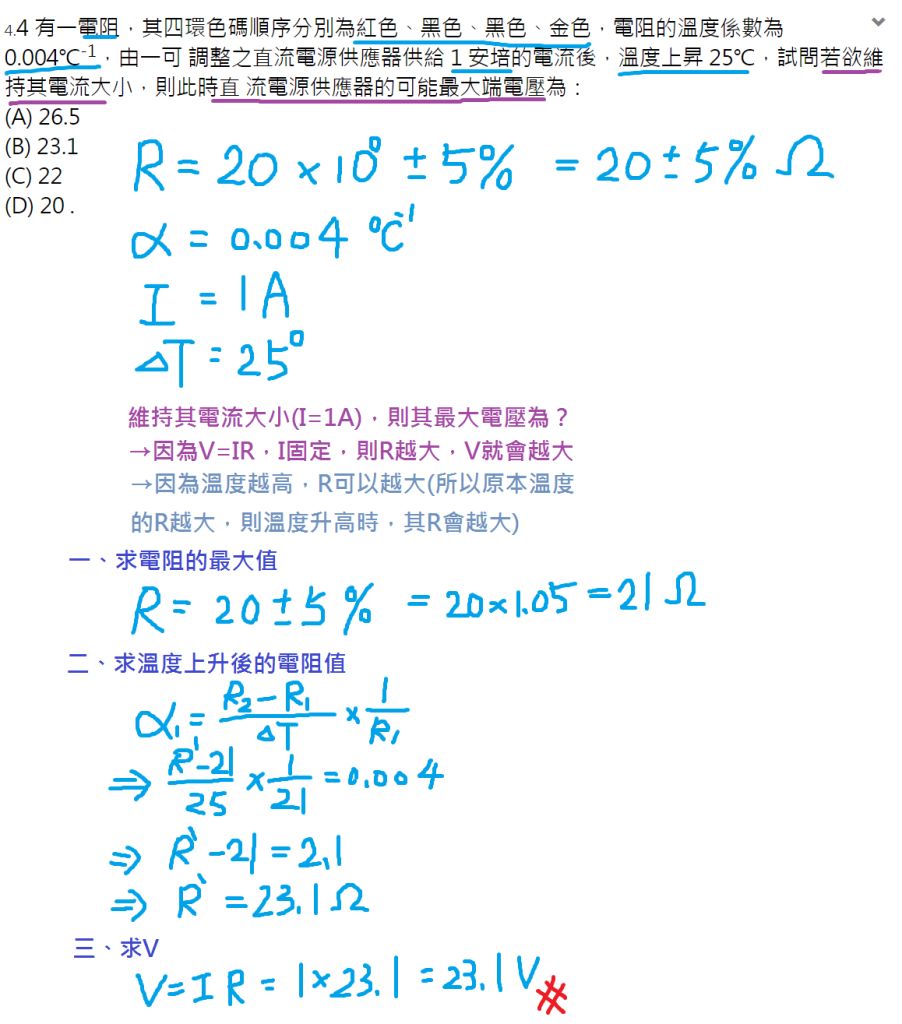 4.4 有一電阻，其四環色碼順序分別為紅色、黑色、黑色、金色，電阻的溫度係數為
0.004℃⁻¹，由一可 調整之直流電源供應器供給 1 安培的電流後，溫度上昇 25℃，試問若欲維
持其電流大小，則此時直 流電源供應器的可能最大端電壓為：
(A) 26.5
(B) 23.1
(C) 22
(D) 20 .
R = 20 × 10⁰ ± 5% = 20 ± 5% Ω
α = 0.004 ℃⁻¹
I = 1A
ΔT = 25°
維持其電流大小(I=1A)，則其最大電壓為？
→因為V=IR，I固定，則R越大，V就會越大
→因為溫度越高，R可以越大(所以原本溫度
的R越大，則溫度升高時，其R會越大)
一、求電阻的最大值
R = 20 ± 5% = 20×1.05 = 21 Ω
二、求溫度上升後的電阻值
α₁ = (R₂-R₁)/ΔT × 1/R₁
⇒ (R'-21)/25 × 1/21 = 0.004
⇒ R' - 21 = 2.1
⇒ R' = 23.1 Ω
三、求V
V = I R = 1×23.1 = 23.1 V #